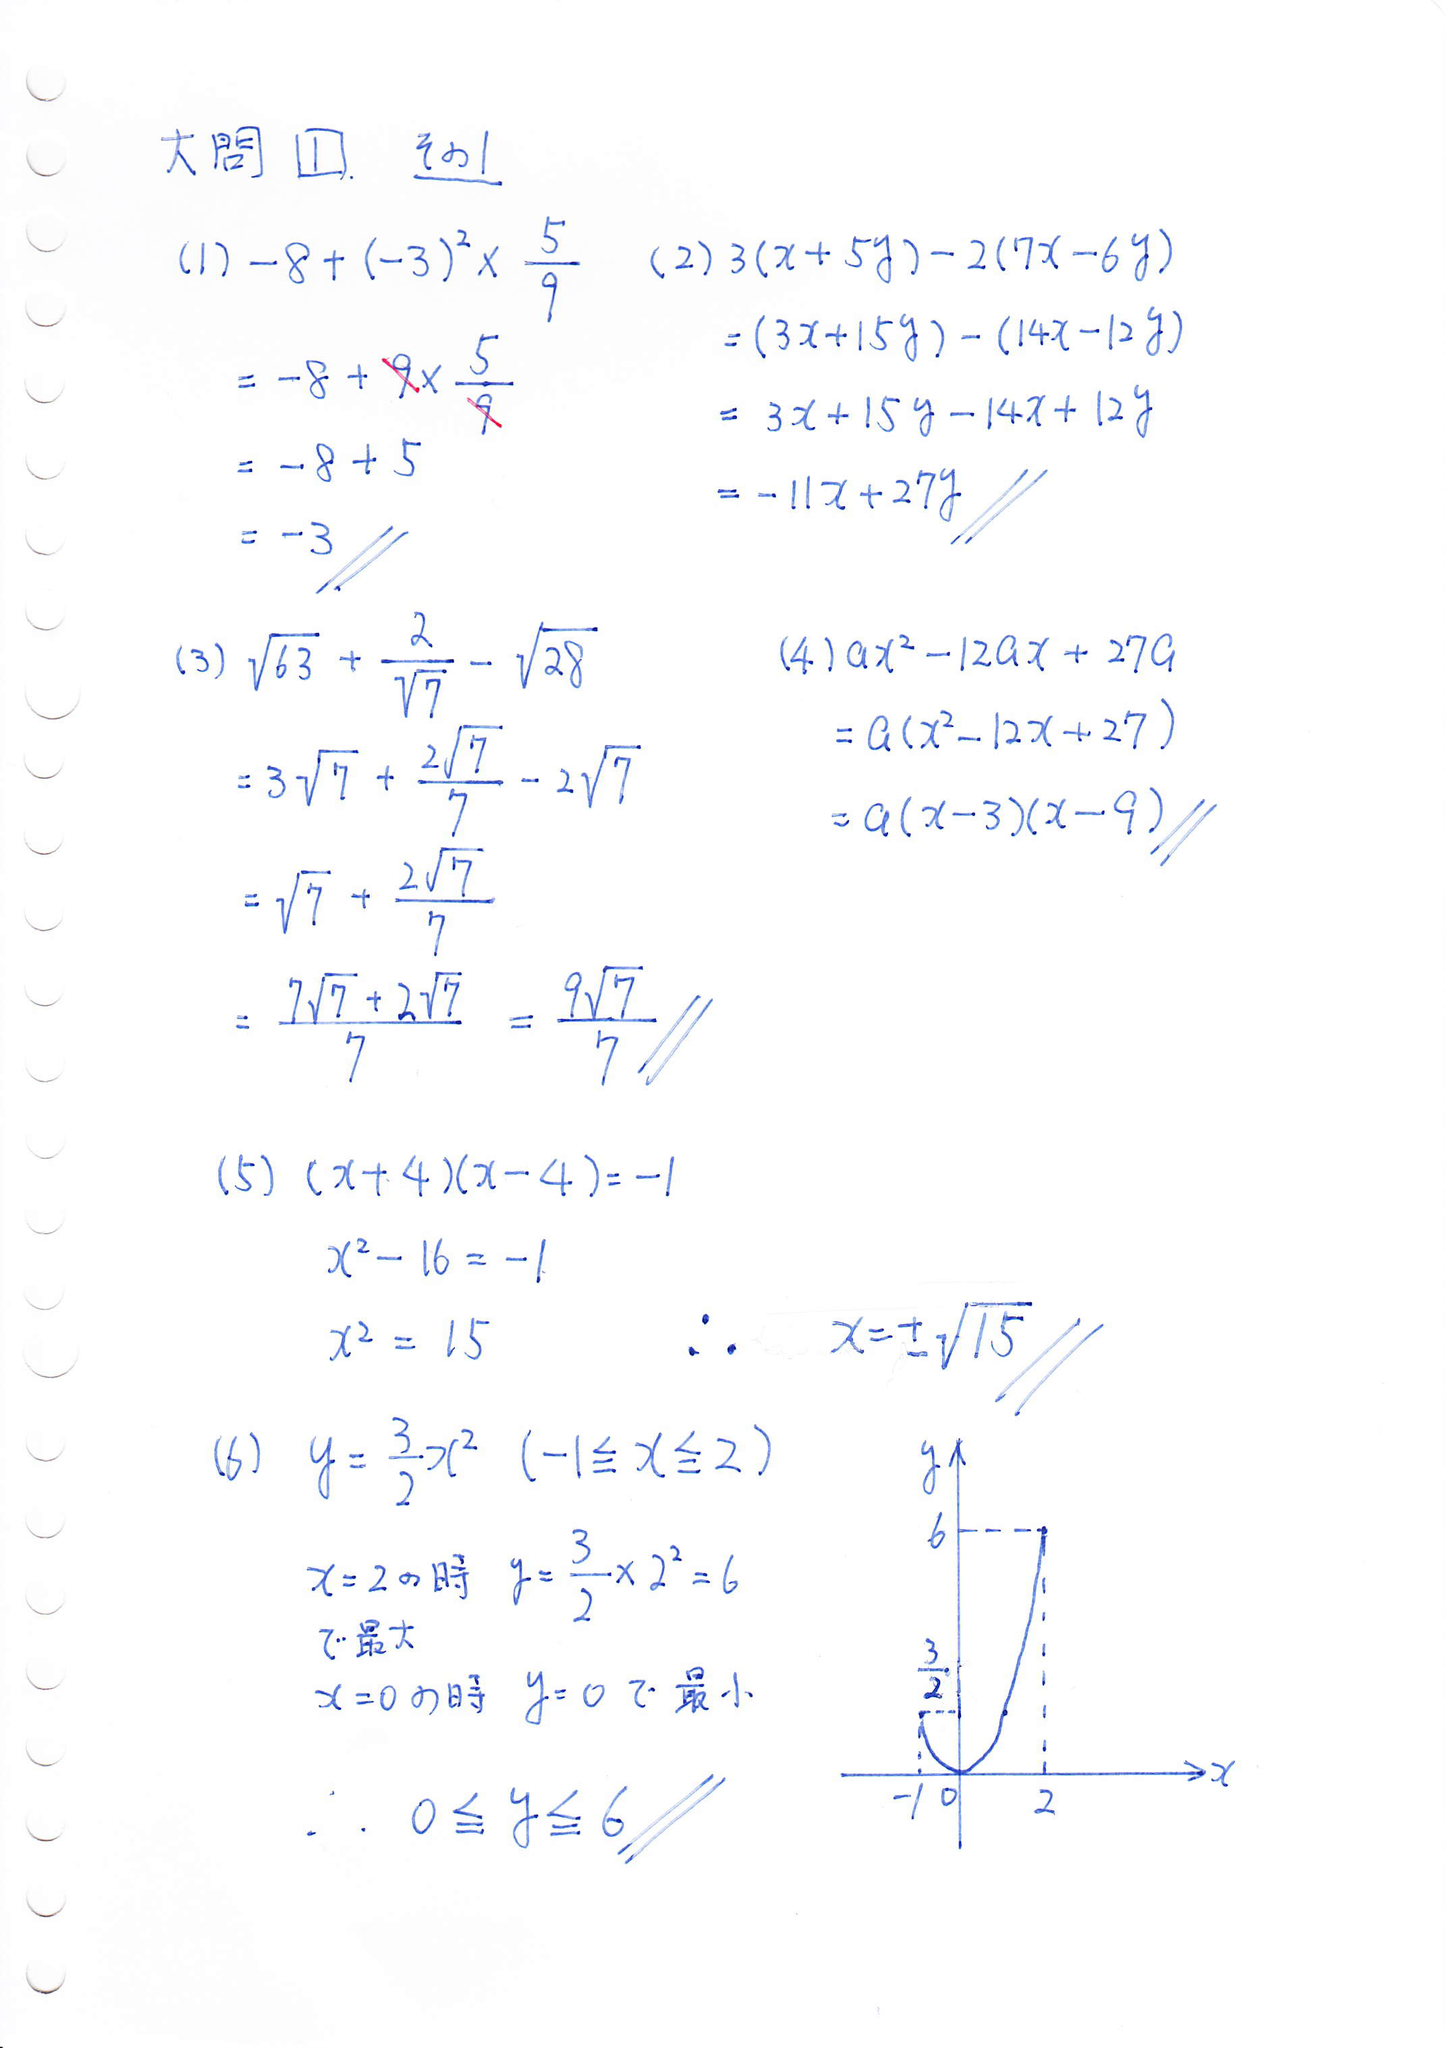 大問 1. その1
(1) -8+(-3)²× 5/9
= -8 + 9× 5/9
= -8 + 5
= -3
(2) 3(x+5y)-2(7x-6y)
=(3x+15y)-(14x-12y)
= 3x+15y-14x+12y
= -11x+27y
(3) √63 + 2/√7 - √28
=3√7 + 2√7/7 - 2√7
=√7 + 2√7/7
= (7√7+2√7)/7 = 9√7/7
(4) ax²-12ax+27a
=a(x²-12x+27)
=a(x-3)(x-9)
(5) (x+4)(x-4)=-1
x²-16=-1
x²=15 ∴ x=±√15
(6) y=3/2x² (-1≦x≦2)
x=2の時 y=3/2×2²=6
で最大
x=0の時 y=0で最小
∴ 0≦y≦6
y
6
3/2
-1 0 2 x